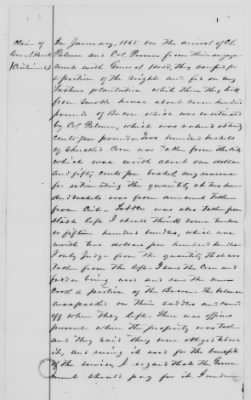 Claim of
(Continued)
In January, 1865 on the arrival of Col.
Palmer and Col. Prosser from their engage-
ment with General Hood, they camped for
a portion of the night and fed on my
fathers plantation which then they took
from smoke house about seven hundred
pounds of Bacon which was estimated
by Col Palmer, which was valued at
cents per pound. Two hundred bushels
of shucked Corn was taken from the
which was worth about one dollar
and fifty cents per bushel, my answer
for estimating the quantity
was from amount taken
from Crib. Fodder was also taken from
stack left. I should think some twelve
or fifteen hundred bundles, which was
worth two dollars per hundred bundles
I only judge from the quantity that was
taken from the left. I saw the Corn and
fodder being used and saw the
took a portion of the Bacon in
on their saddles and carried
off when they left. There was officers
present when the property was taken
and they said they were obliged to have
it, and seeing it used for the benefit
of the service, I regard that the Govern-
ment should pay for it.